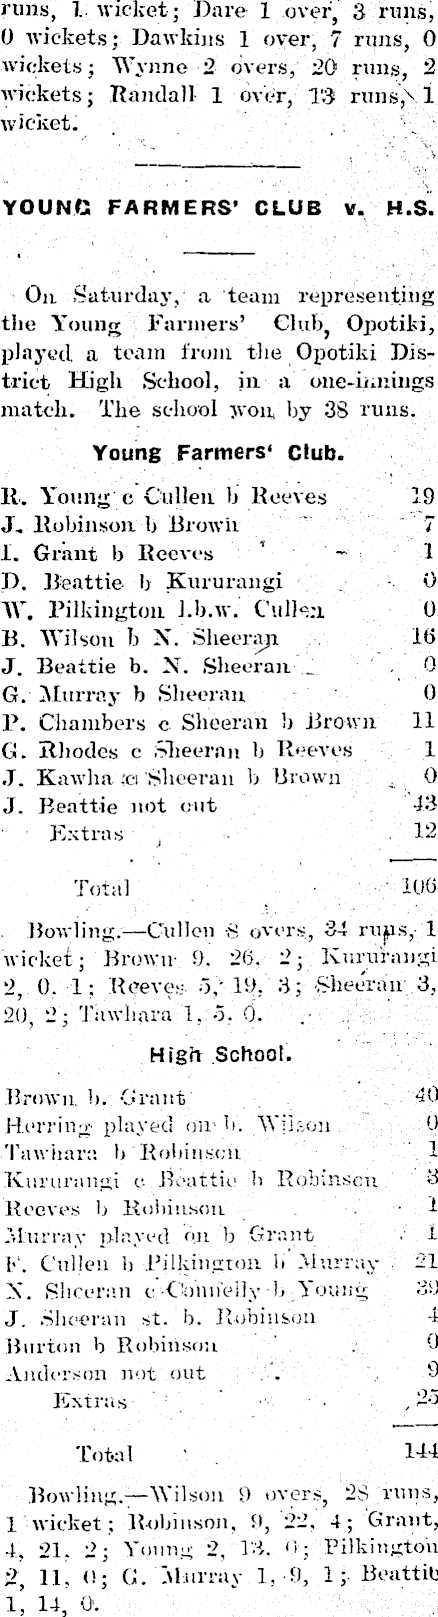 runs, 1 wicket; Dare 1 over, 3 runs,
0 wickets; Dawkins 1 over, 7 runs, 0
wickets; Wynne 2 overs, 20 runs, 2
wickets; Randall 1 over, 13 runs, 1
wicket.
YOUNG FARMERS' CLUB v. H.S.
On Saturday, a team representing
the Young Farmers' Club, Opotiki,
played a team from the Opotiki Dis-
trict High School, in a one-innings
match. The school won by 38 runs.
Young Farmers' Club.
R. Young c Cullen b Reeves 19
J. Robinson b Brown 7
I. Grant b Reeves 1
D. Beattie b Kururangi 0
W. Pilkington l.b.w. Cullen 0
B. Wilson b N. Sheeran 16
J. Beattie b. N. Sheeran 0
G. Murray b Sheeran 0
P. Chambers c Sheeran b Brown 11
G. Rhodes c Sheeran b Reeves 1
J. Kawha c Sheeran b Brown 0
J. Beattie not out 43
Extras 12
Total 106
Bowling.—Cullen 8 overs, 34 runs, 1
wicket; Brown 9, 26, 2; Kururangi
2, 0, 1; Reeves 5, 19, 3; Sheeran 3,
20, 2; Tawhara 1, 5, 0.
High School.
Brown b. Grant 40
Herring played on b. Wilson 0
Tawhara b Robinson 1
Kururangi c Beattie b Robinson 3
Reeves b Robinson 1
Murray played on b Grant 1
F. Cullen b Pilkington b Murray 21
N. Sheeran c Connelly b Young 39
J. Sheeran st. b. Robinson 4
Burton b Robinson 0
Anderson not out 9
Extras 25
Total 144
Bowling.—Wilson 9 overs, 28 runs,
1 wicket; Robinson, 9, 22, 4; Grant,
4, 21, 2; Young 2, 13, 0; Pilkington
2, 11, 0; G. Murray 1, 9, 1; Beattie
1, 14, 0.